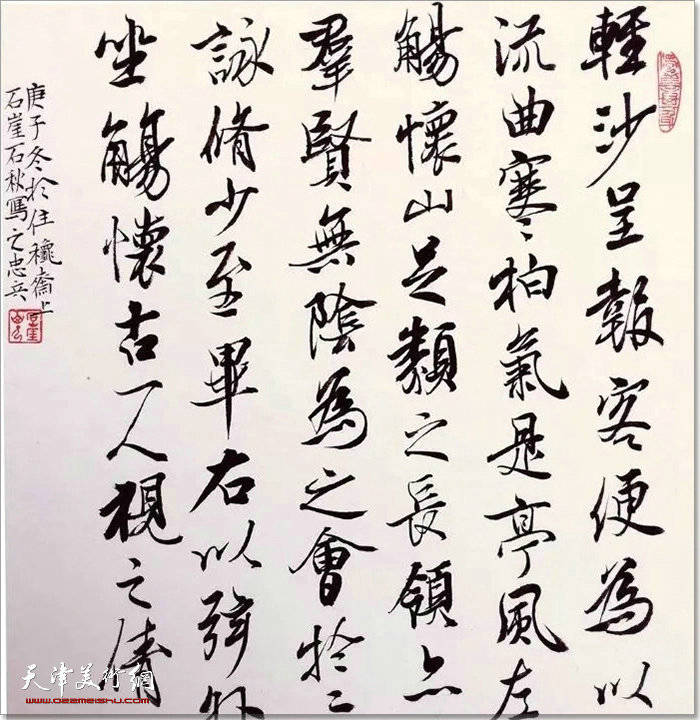 輕沙呈報客便為以
流曲寒柏氣是亭風左
觴懷山足類之長領亦
羣賢無陰為之會於
詠脩少至畢右以強外
坐觴懷古一人視之情
庚子冬於住穐齋上
石崖石秋寫之忠兵
天津美術網
www.022meishu.com